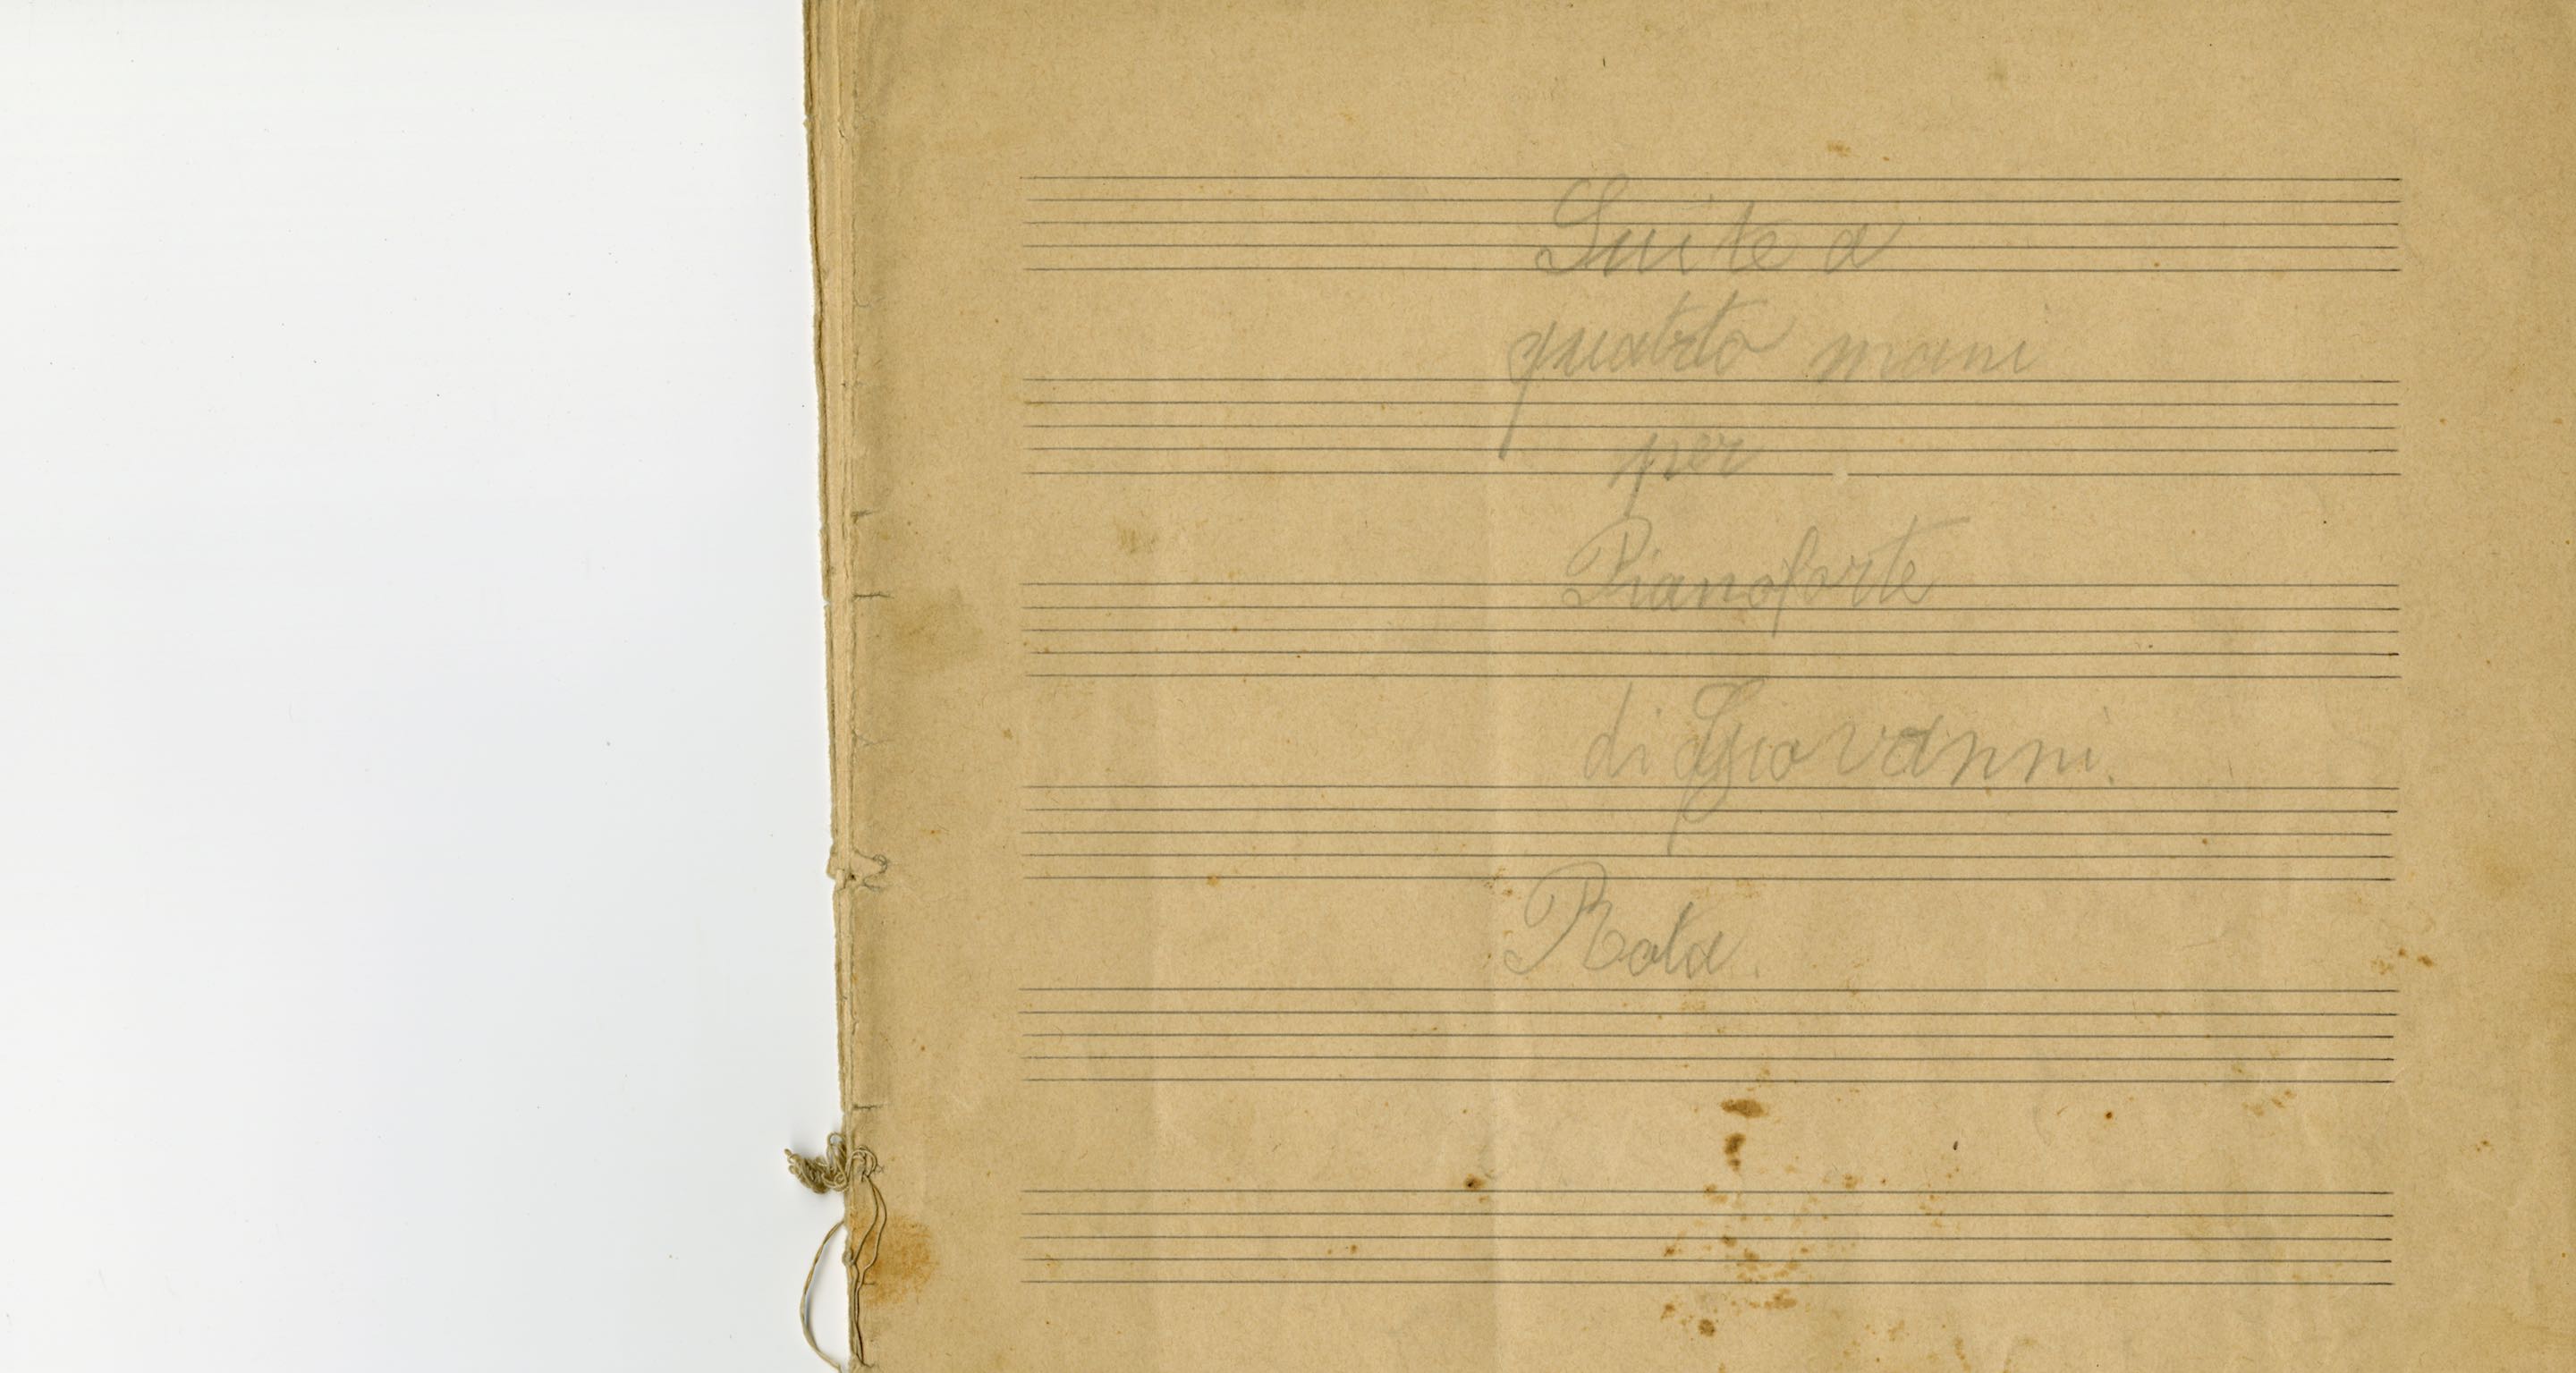 Suite a
quatro mani
per
Pianoforte
di Giovanni.
Rota.